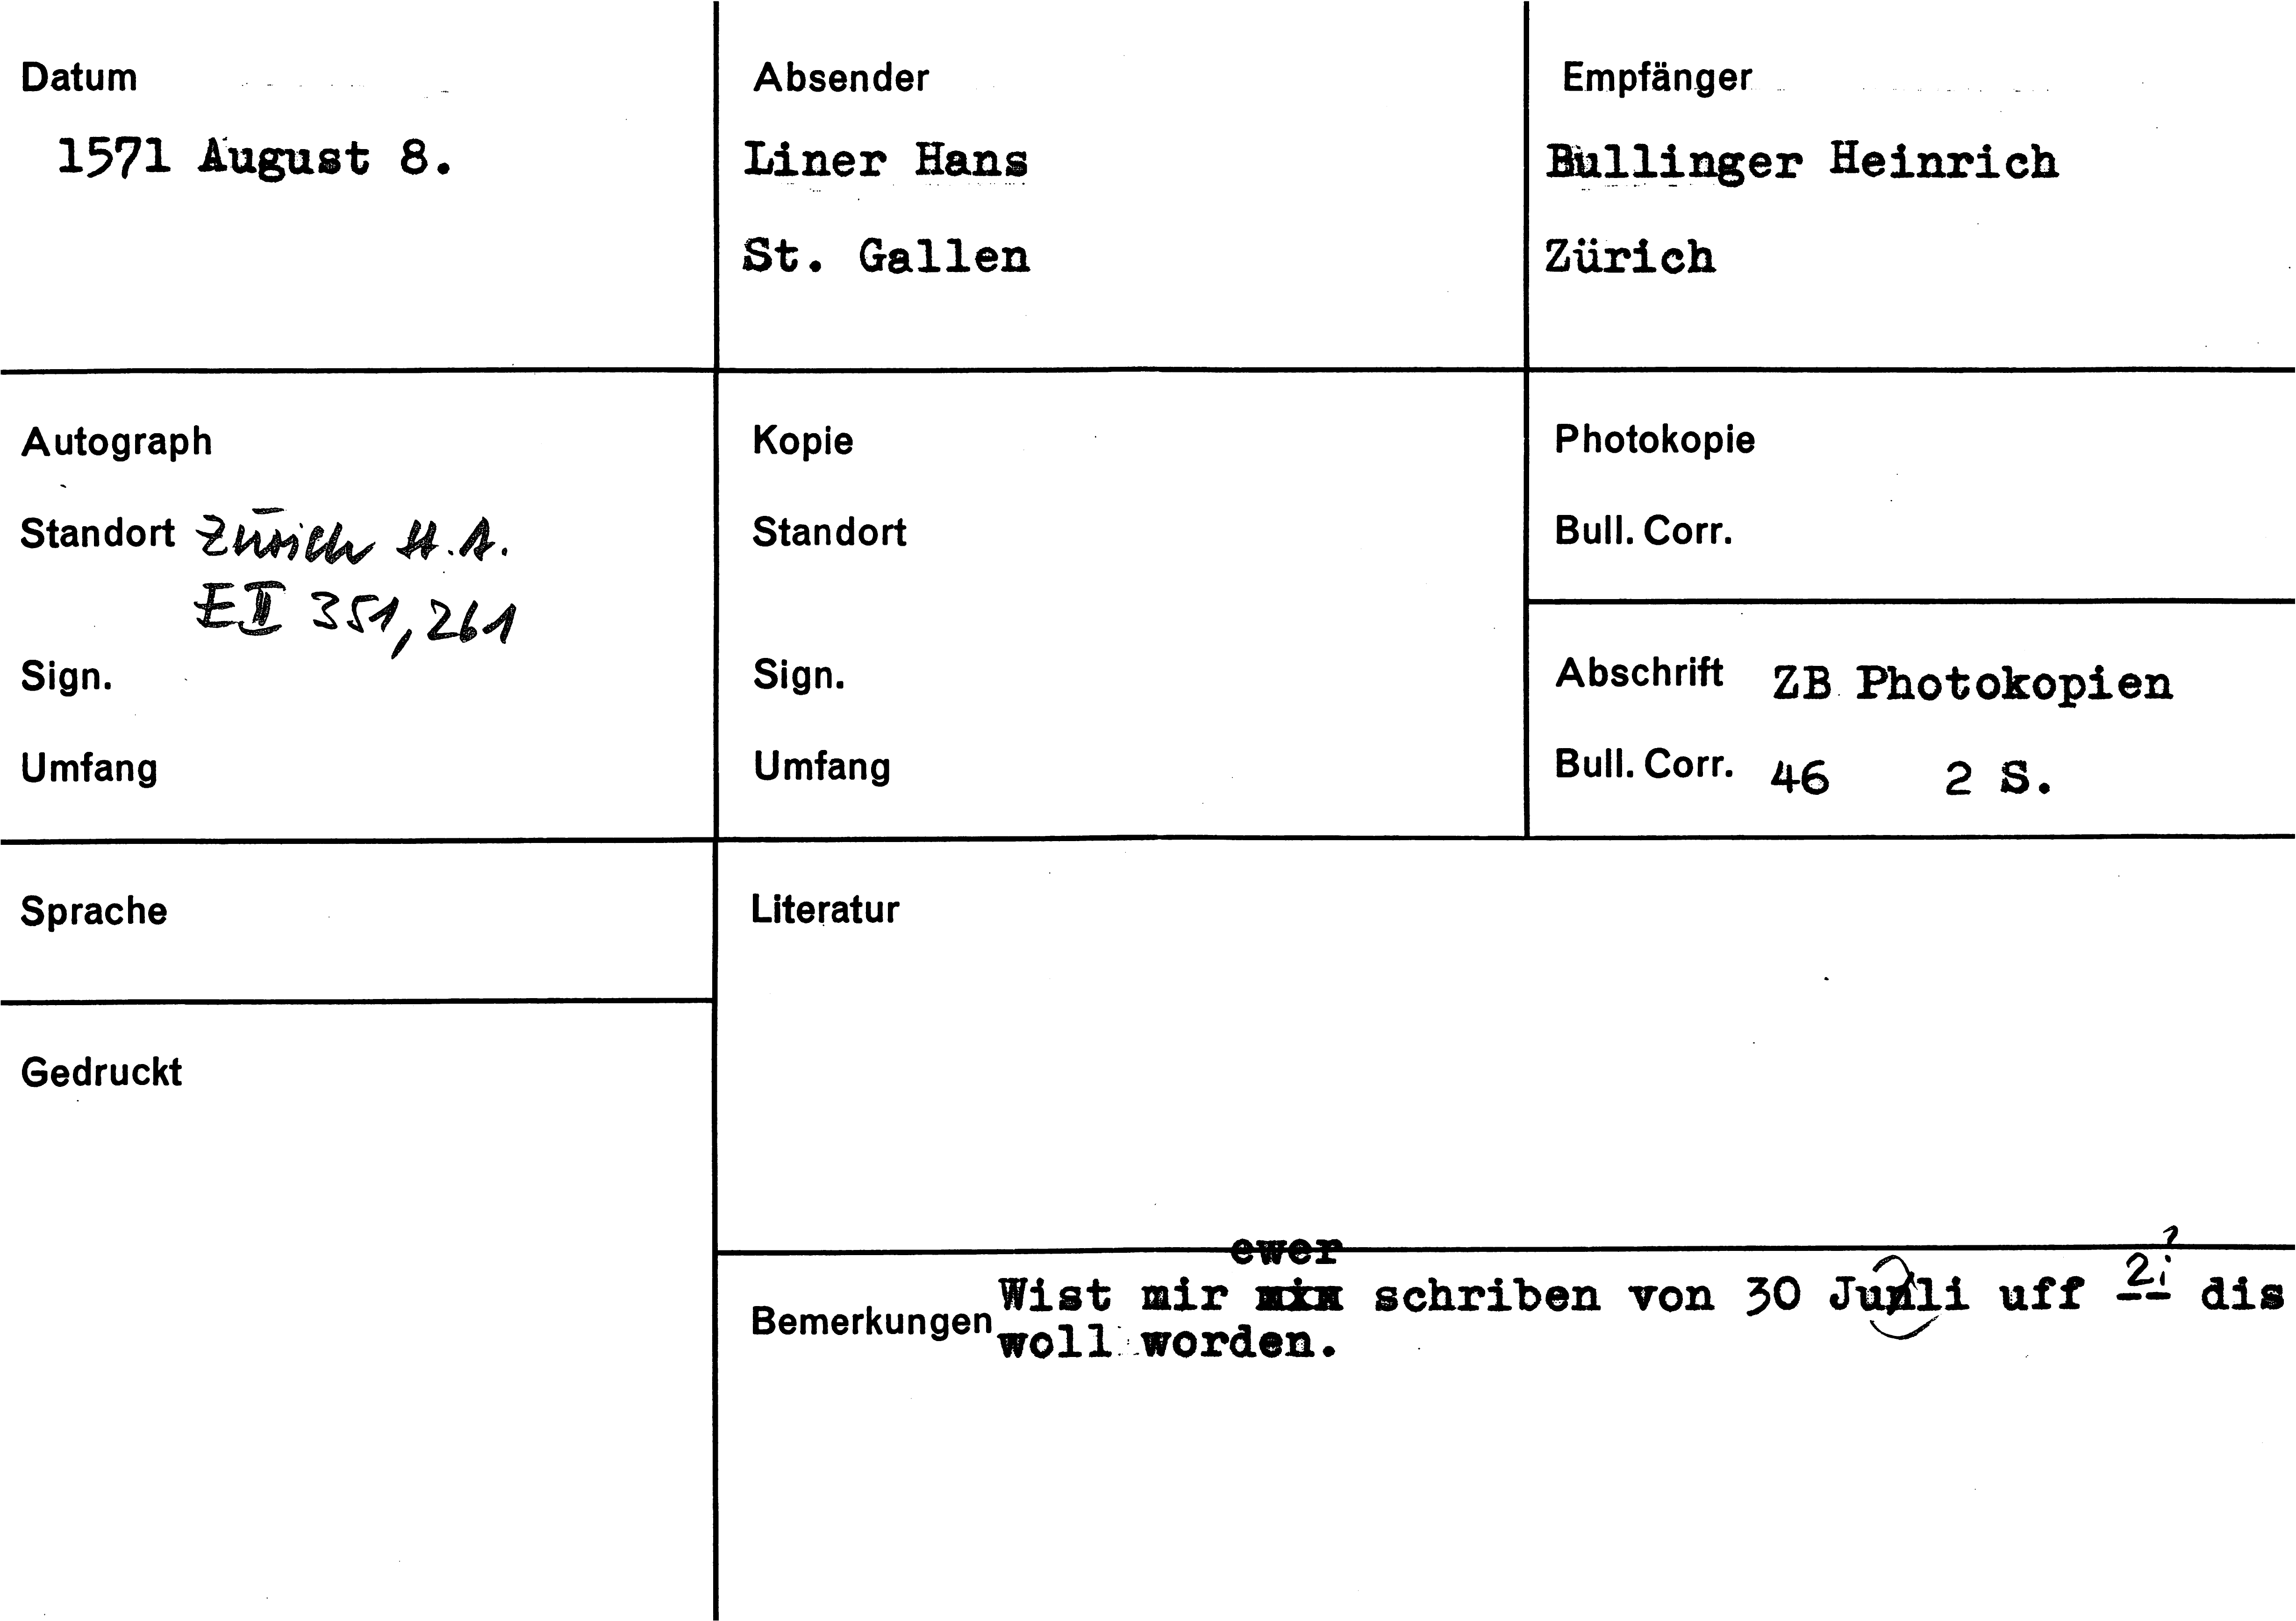 Datum
1571 August 8.
Absender
Liner Hans
St. Gallen
Empfänger
Bullinger Heinrich
Zürich
Autograph
Standort Zürich St.A.
E II 351, 261
Sign.
Umfang
Kopie
Standort
Sign.
Umfang
Photokopie
Bull. Corr.
Abschrift ZB Photokopien
Bull. Corr. 46 2 S.
Sprache
Gedruckt
Literatur
ewer
Bemerkungen Wist mir schriben von 30 Juli uff 2i? dis
woll worden.